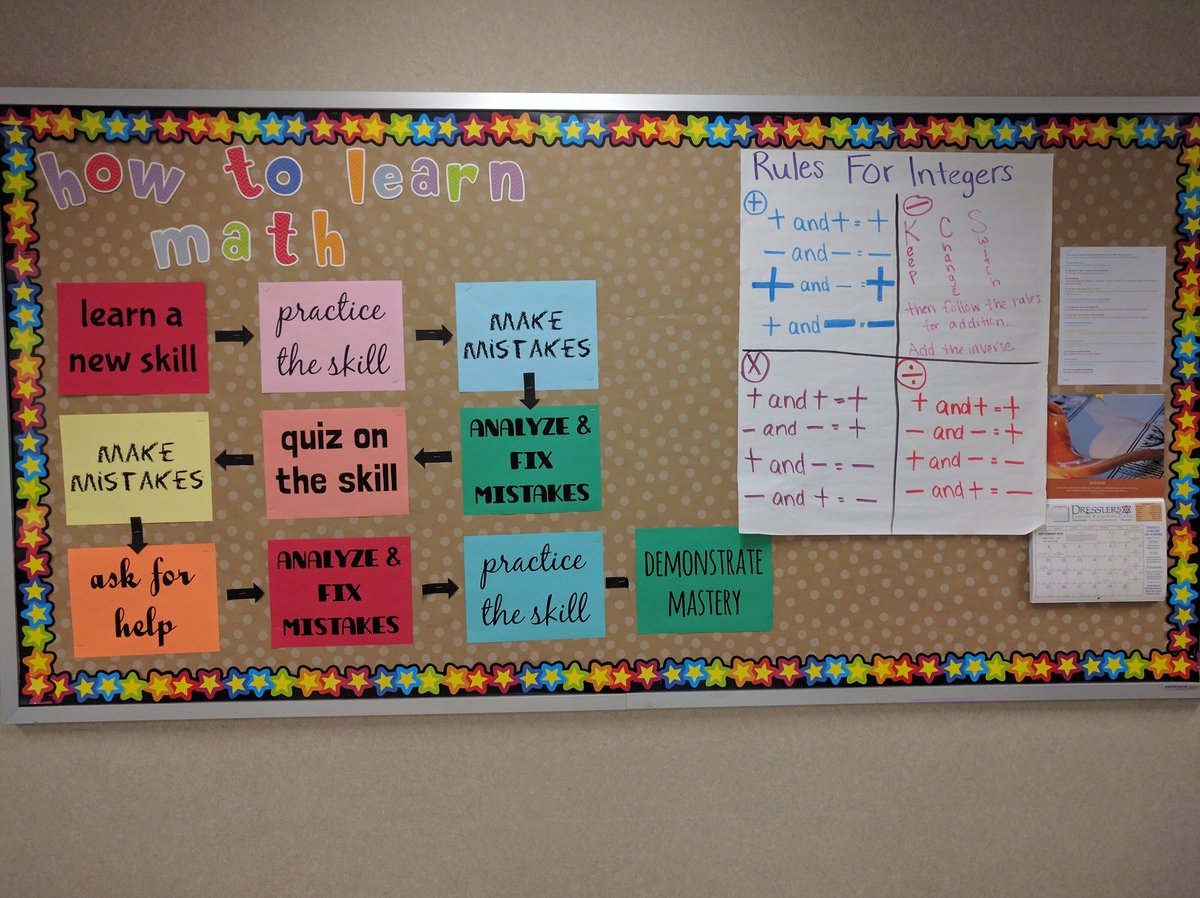 how to learn
math
learn a
new skill
practice
the skill
MAKE
MISTAKES
ANALYZE &
FIX
MISTAKES
quiz on
the skill
MAKE
MISTAKES
ask for
help
ANALYZE &
FIX
MISTAKES
practice
the skill
DEMONSTRATE
MASTERY
Rules For Integers
+
+ and + = +
- and - = -
+ and - = +
+ and - = -
-
Keep Change Switch
then follow the rules
for addition.
Add the inverse
x
+ and + = +
- and - = +
+ and - = -
- and + = -
÷
+ and + = +
- and - = +
+ and - = -
- and + = -
DRESSLER'S
SEPTEMBER 2016